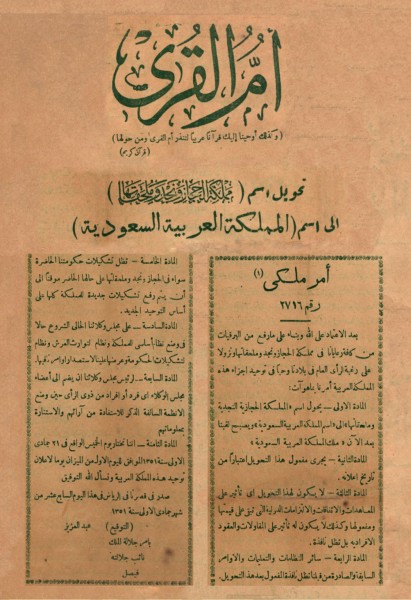 أم القرى
(وكذلك أوحينا إليك قرآناً عربياً لتنذر أم القرى ومن حولها)
(قرآن كريم)
تحويل اسم (مملكة الحجاز ونجد وملحقاتها)
الى اسم (المملكة العربية السعودية)
أمر ملكي (١)
رقم ٢٧١٦
بعد الاعتماد على الله وبناء على مارفع من البرقيات
من كافة رعايانا فى مملكة الحجاز ونجد وملحقاتها ونزولا
على رغبة الرأى العام فى بلادنا وحبا فى توحيد اجزاء هذه
المملكة العربية أمرنا بما هو آت:
المادة الاولى – يحول اسم «المملكة الحجازية النجدية
وملحقاتها» الى اسم «المملكة العربية السعودية» ويصبح لقبنا
بعد الآن «ملك المملكة العربية السعودية»
المادة الثانية – يجرى مفعول هذا التحويل اعتبارا من
تاريخ اعلانه.
المادة الثالثة – لا يكون لهذا التحويل اى تأثير على
المعاهدات والاتفاقات والالتزامات الدولية التى تبقى على قيمتها
ومفعولها وكذلك لا يكون له تأثير على المقاولات والعقود
الافرادية بل تظل نافذة.
المادة الرابعة – سائر النظامات والتعليمات والاوامر
السابقة والصادرة من قبلنا تظل نافذة المفعول بعد هذا التحويل.
المادة الخامسة – تظل تشكيلات حكومتنا الحاضرة
سواء فى الحجاز ونجد وملحقاتها على حالها الحاضر موقتا الى
أن يتم وضع تشكيلات جديدة للمملكة كلها على
أساس التوحيد الجديد.
المادة السادسة – على مجلس وكلائنا الحالى الشروع حالا
فى وضع نظام أساسى للمملكة ونظام لتوارث العرش ونظام
لتشكيلات الحكومة وعرضها علينا لاستصدار اوامرنا فيها.
المادة السابعة – لرئيس مجلس وكلائنا ان يضم الى أعضاء
مجلس الوكلاء اى فرد أو افراد من ذوى الرأى حين وضع
الانظمة السالفة الذكر للاستفادة من آرائهم والاستنارة
بمعلوماتهم
المادة الثامنة – اننا نختار يوم الخميس الواقع فى ٢١ جمادى
الاولى سنة ١٣٥١ الموافق لليوم الاول من الميزان يوما لاعلان
توحيد هذه المملكة العربية ونسأل الله التوفيق
صدر فى قصرنا فى الرياض فى هذا اليوم السابع عشر من
شهر جمادى الاولى سنة ١٣٥١
(التوقيع) عبد العزيز
بأمر جلالة الملك
نائب جلالته
فيصل